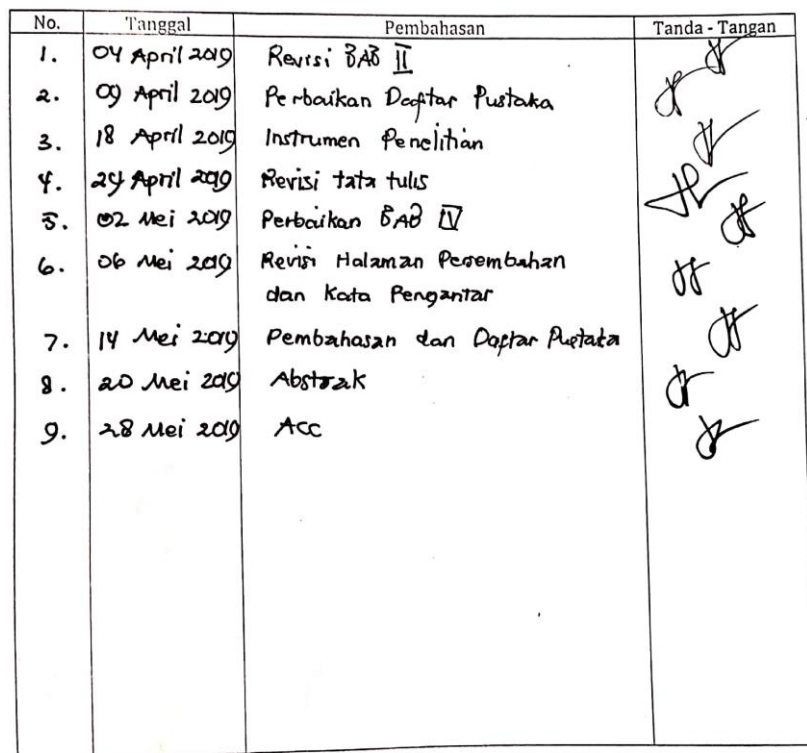 No. Tanggal Pembahasan Tanda - Tangan
1. 04 April 2019 Revisi BAB II
2. 09 April 2019 Perbaikan Daftar Pustaka
3. 18 April 2019 Instrumen Penelitian
4. 24 April 2019 Revisi tata tulis
5. 02 Mei 2019 Perbaikan BAB IV
6. 06 Mei 2019 Revisi Halaman Persembahan
dan Kata Pengantar
7. 14 Mei 2019 Pembahasan dan Daftar Pustaka
8. 20 Mei 2019 Abstrak
9. 28 Mei 2019 Acc